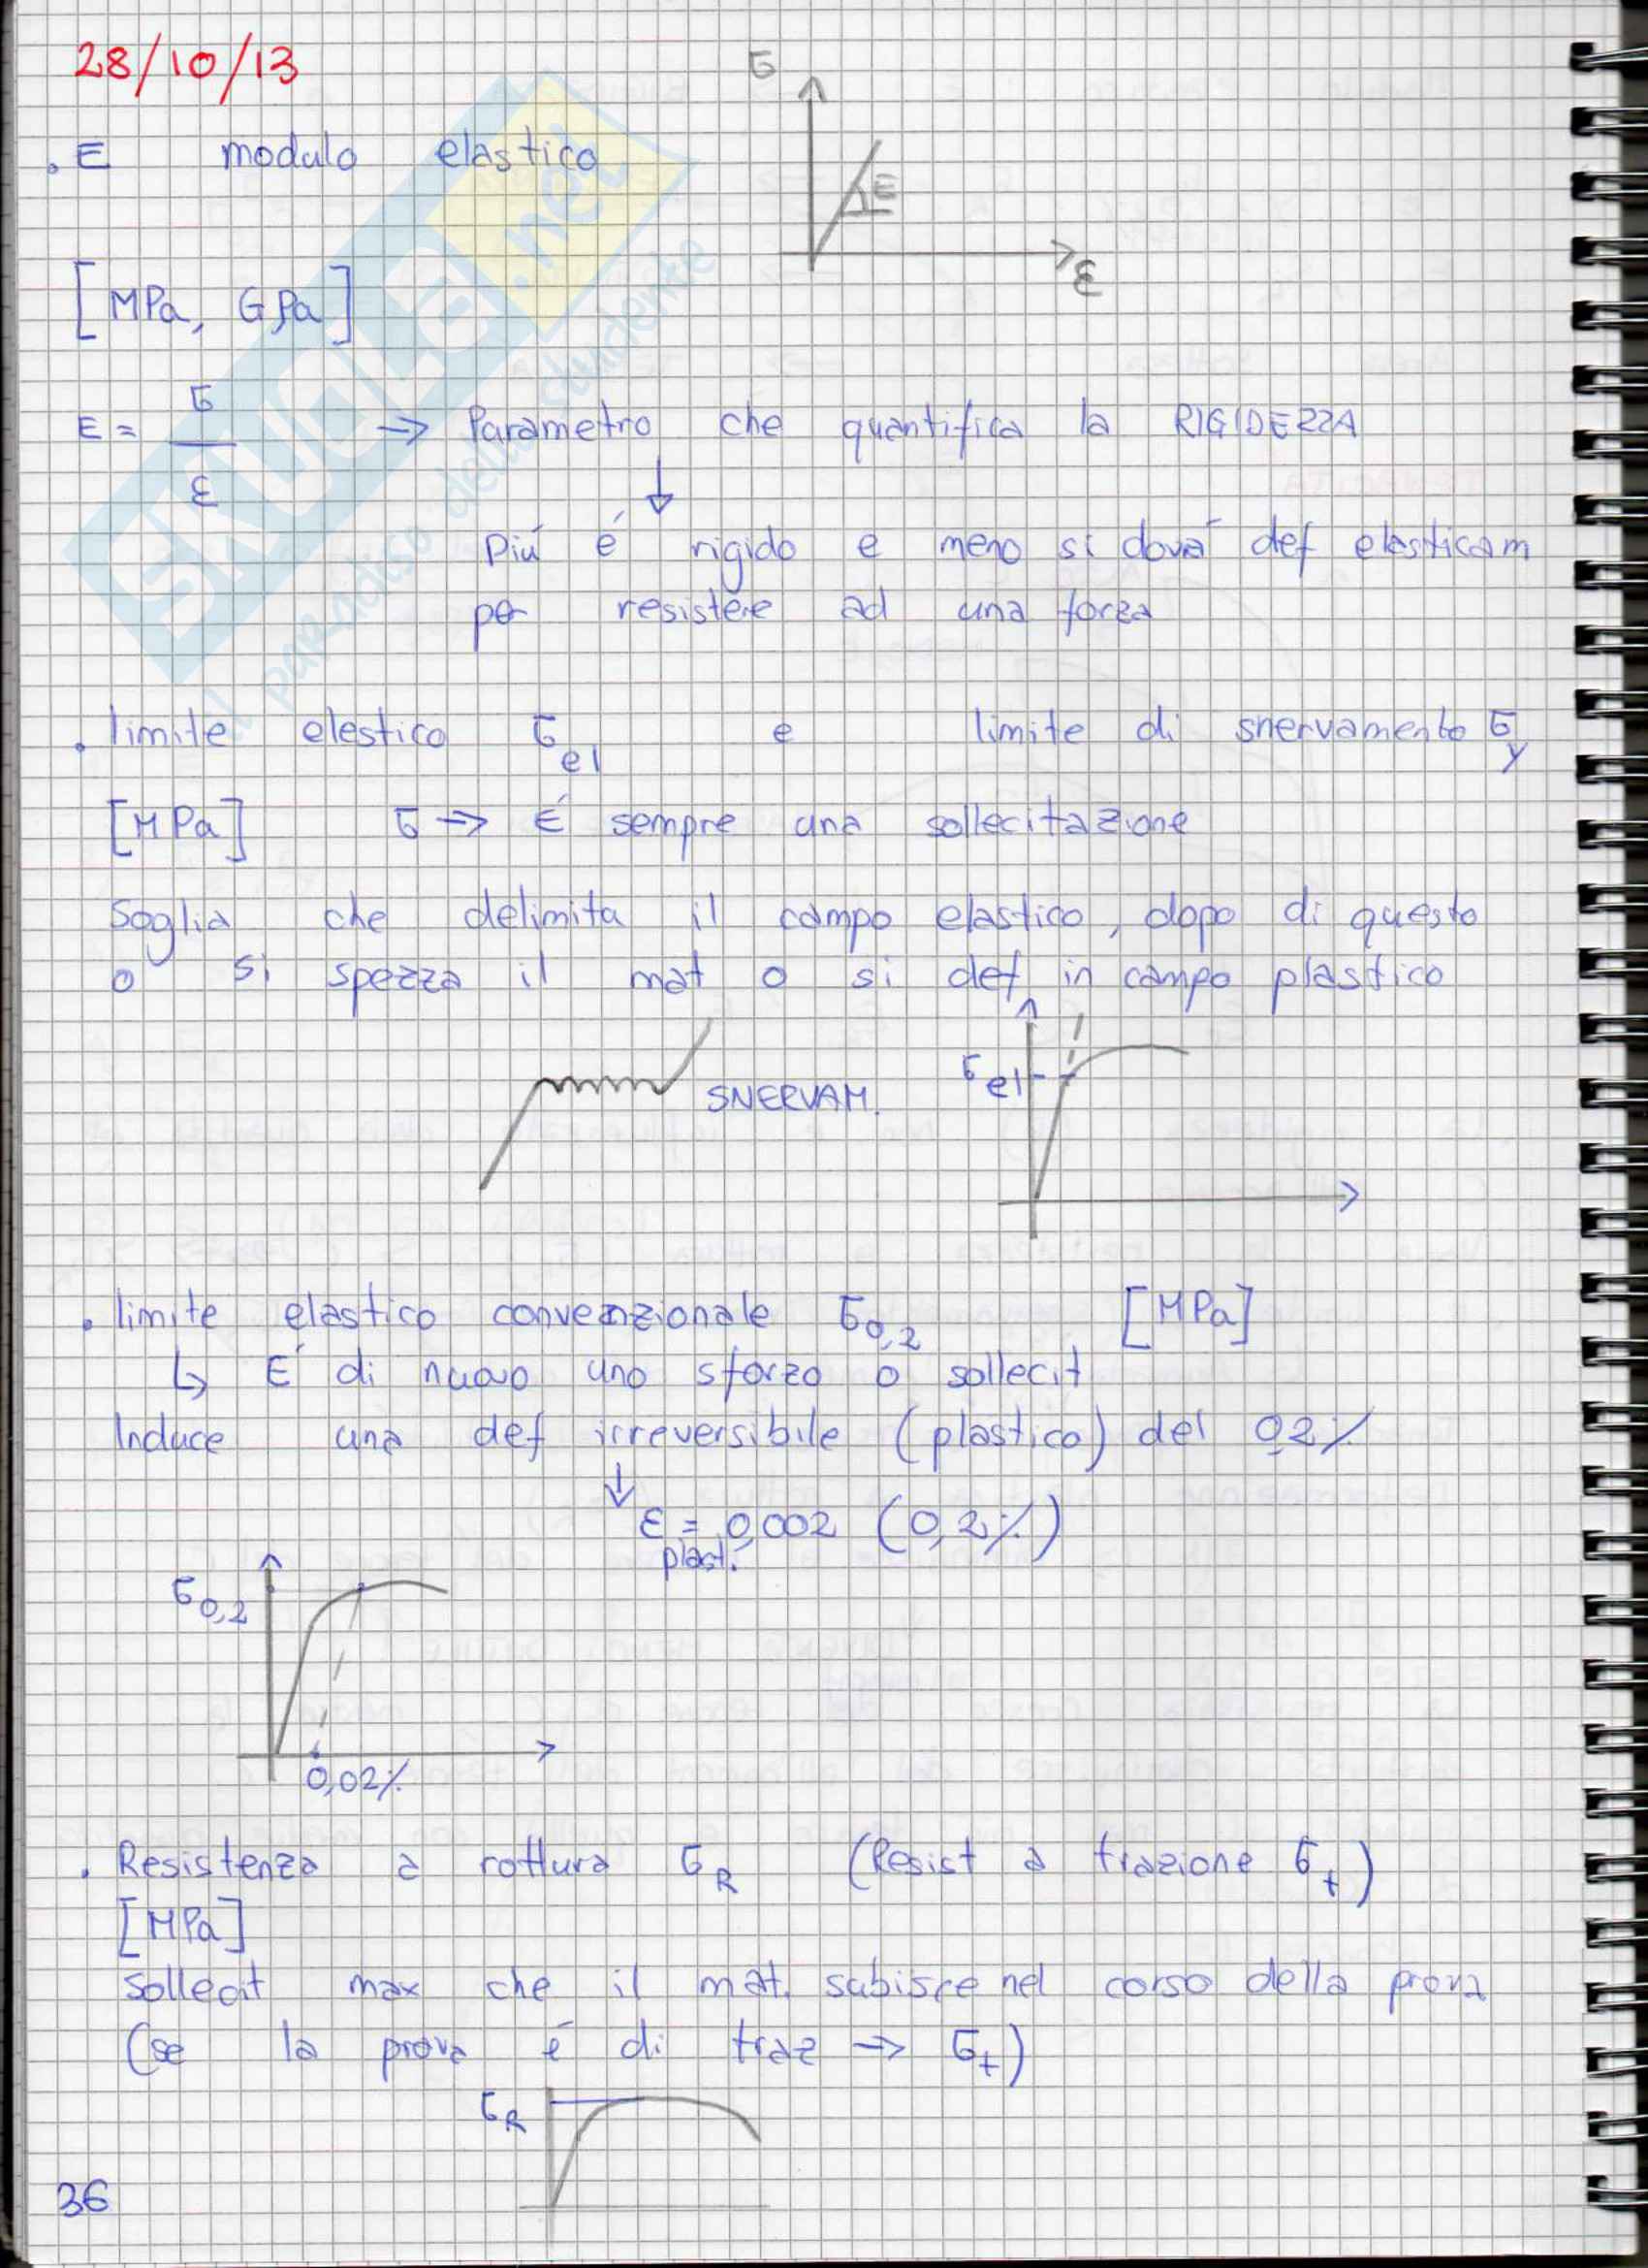 28/10/13
σ
. E modulo elastico
E
ε
[MPa, GPa]
E = σ/ε → Parametro che quantifica la RIGIDEZZA
↓
Più é rigido e meno si dovrà def elasticam
per resistere ad una forza
. limite elestico σel e limite di snervamento σy
[MPa] σ → É sempre una sollecitazione
Soglia che delimita il campo elastico, dopo di questo
o si spezza il mat o si def in campo plastico
SNERVAM.
σel
. limite elastico convenzionale σ0,2 [MPa]
↳ É di nuovo uno sforzo o sollecit
Induce una def irreversibile (plastica) del 0,2%
↓
εplast. = 0,002 (0,2%)
σ0,2
0,02%
. Resistenza a rottura σR (Resist a trazione σt)
[MPa]
Sollecit max che il mat. subisce nel corso della prova
(se la prova é di traz → σt)
σR
36
SKUOLA.net
il paradiso dello studente